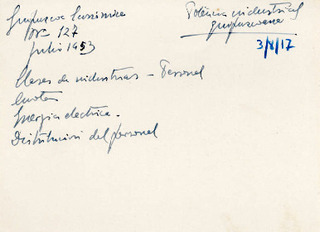 Guipuzcoa Economica
Nº 127
Julio 1953
Potencia industrial
guipuzcoana
3/8/17
Clases de industrias - Personal
Cuotas
Energia electrica.
Distribucion del personal